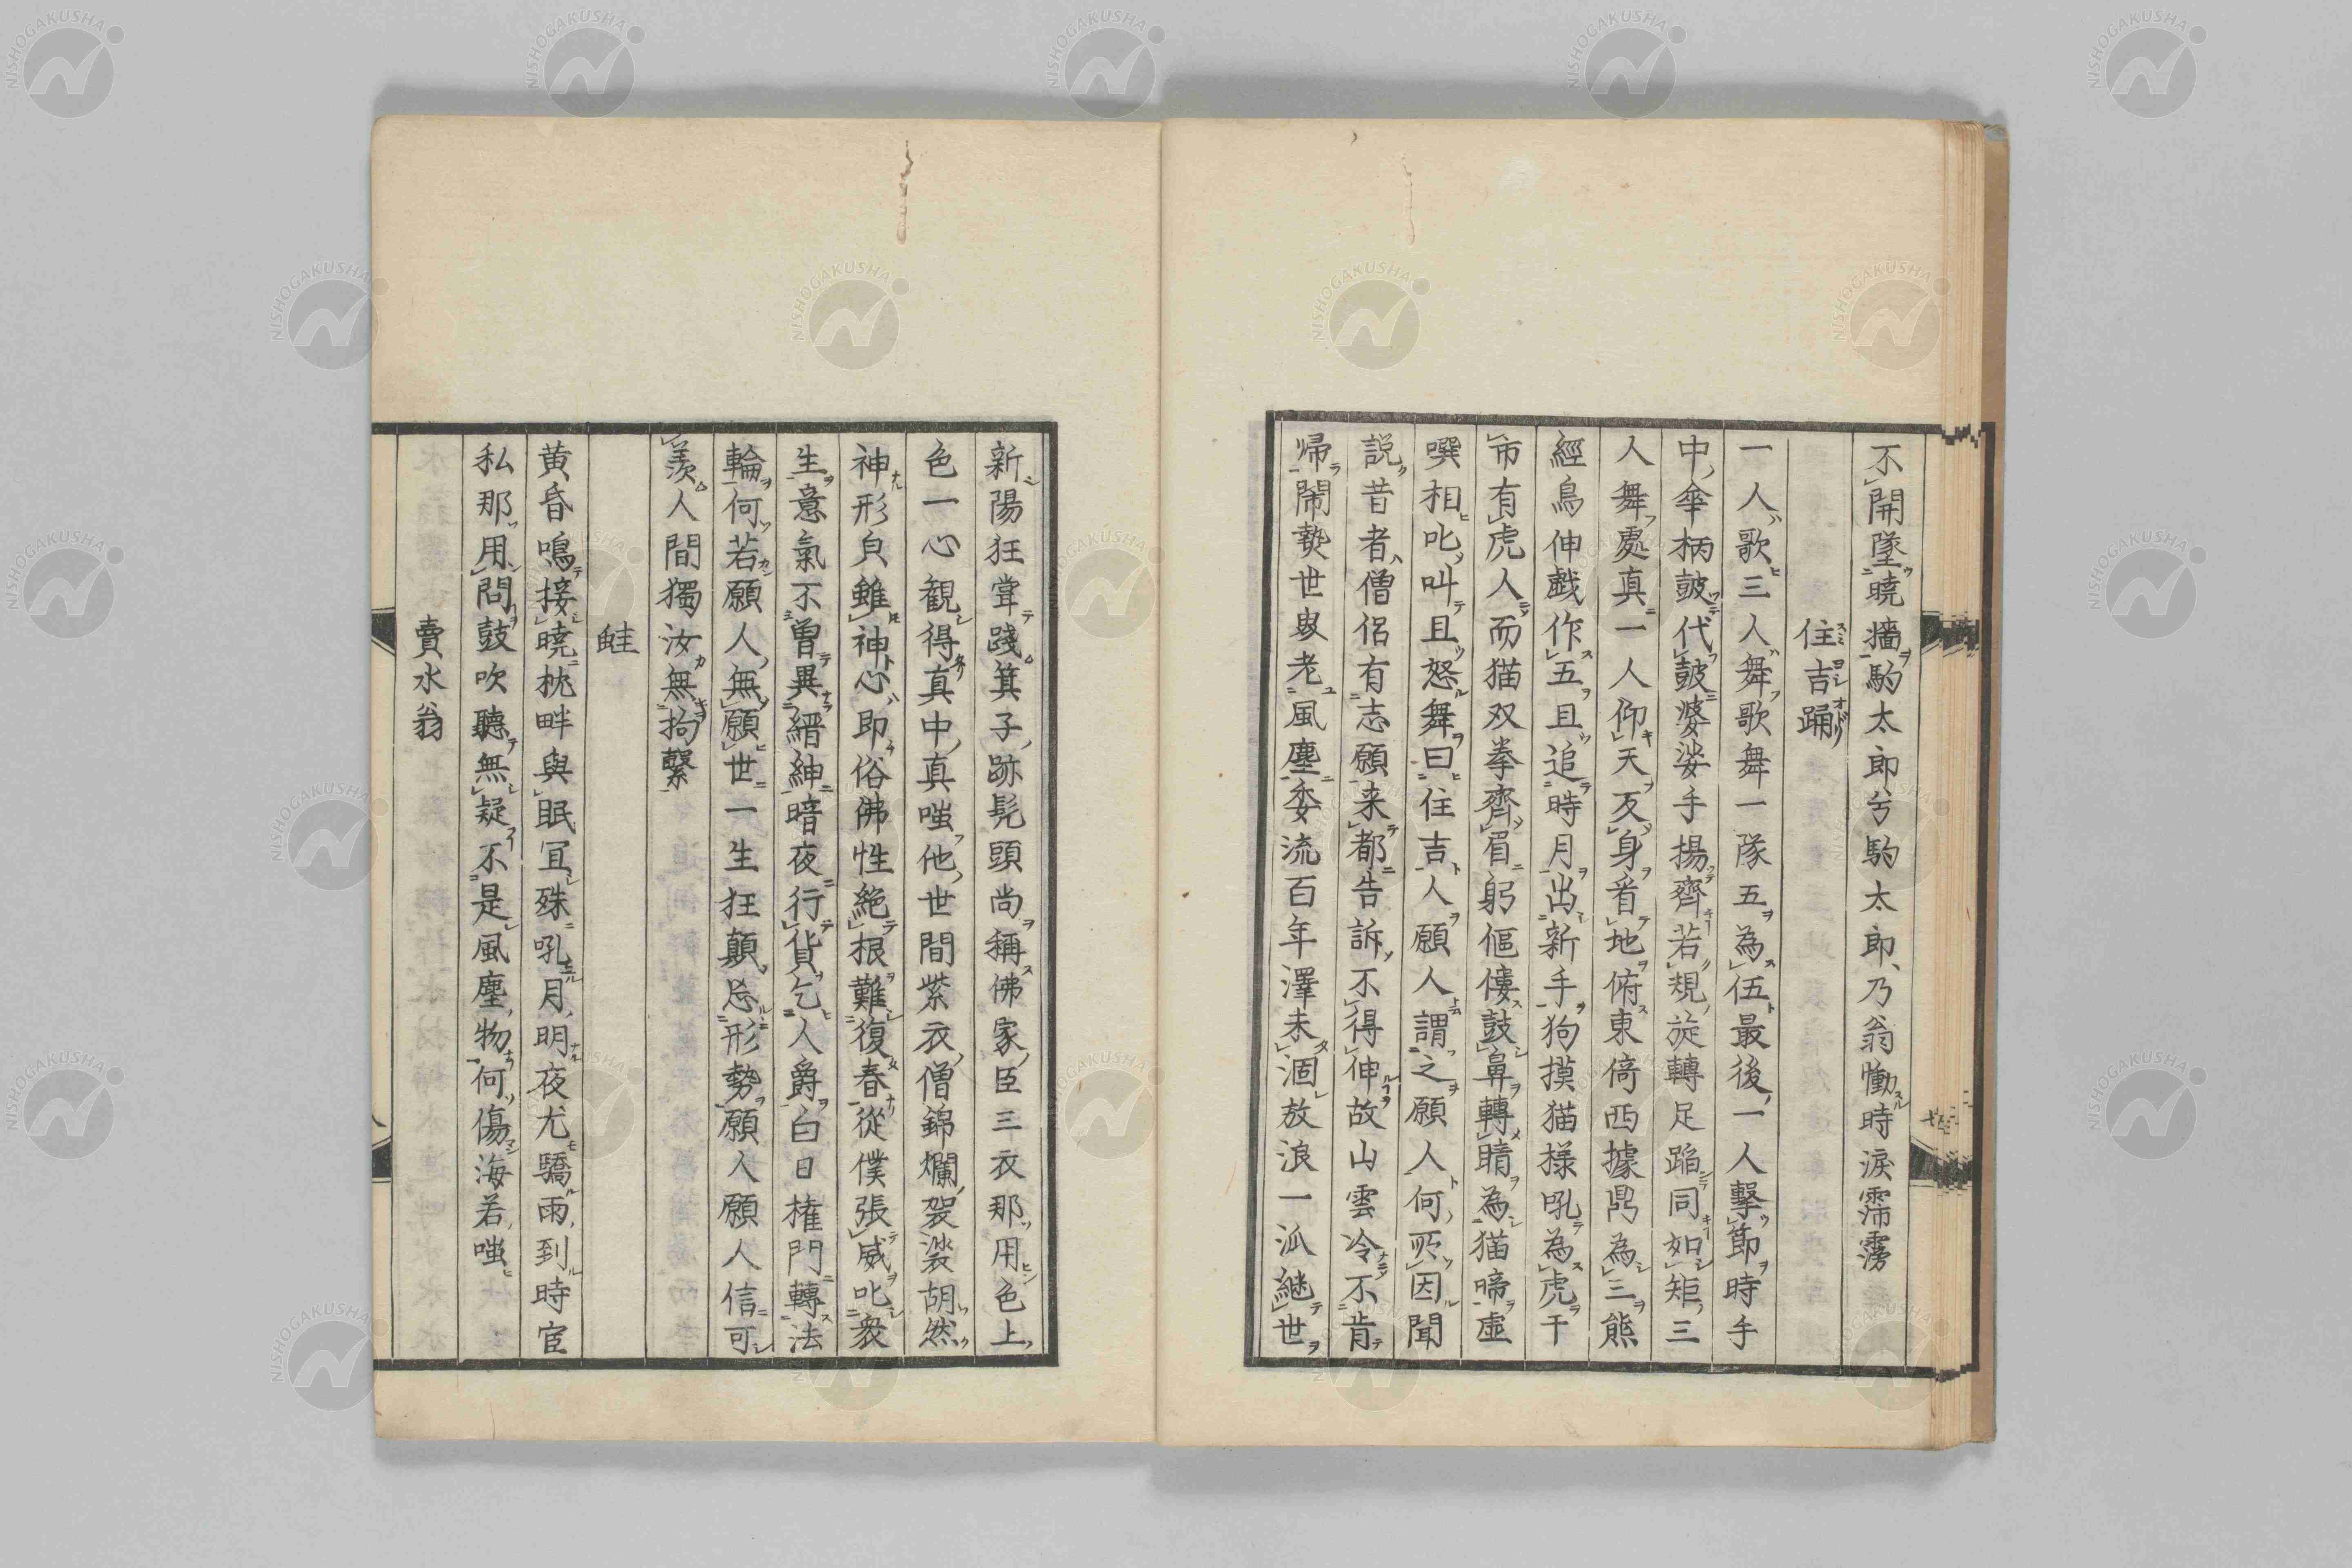 不開墜曉墻駒太郎兮駒太郎乃翁慟時淚霈霶
住吉踊
一人歌三人舞歌舞一隊五為伍最後一人擊節時手
中傘柄皷代皷婆娑手揚齊若規旋轉足蹈同如矩三
人舞處真一人仰天反身看地俯東倚西據鼎為三熊
經鳥伸戲作五且追時月出新手狗摸猫様吼為虎干
市有虎人而猫双拳齊眉躬傴僂皷鼻轉睛為猫啼虛
噀相叱叫且怒舞曰住吉人願人謂之願人何所因聞
説昔者僧侶有志願来都告訴不得伸故山雲冷不肯
帰鬧熱世界老風塵委流百年澤未涸放浪一派継世
新陽狂耸踐箕子跡髡頭尚稱佛家臣三衣那用色上
色一心観得真中真嗤他世間紫衣僧錦爛袈裟胡然
神形貞雖神心即俗佛性絶根難復春從僕張威叱衆
生意氣不曽異縉紳暗夜行貨乞人爵白日権門轉法
輪何若願人無願世一生狂顛忘形勢願人願人信可
羨人間獨汝無拘繫
鮭
黄昏鳴接曉枕畔與眠冝殊吼月明夜尤驕雨到時宦
私那用問鼓吹聽無疑不是風塵物何傷海若嗤
賣水翁
NISHOGAKUSHA